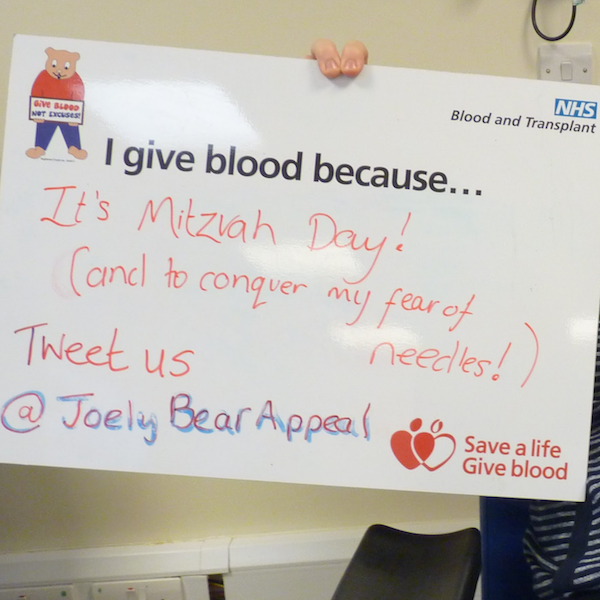 NHS
Blood and Transplant
GIVE BLOOD
NOT EXCUSES!
I give blood because...
It's Mitzvah Day!
(and to conquer my fear of
needles!)
Tweet us
@ Joely Bear Appeal
Save a life
Give blood